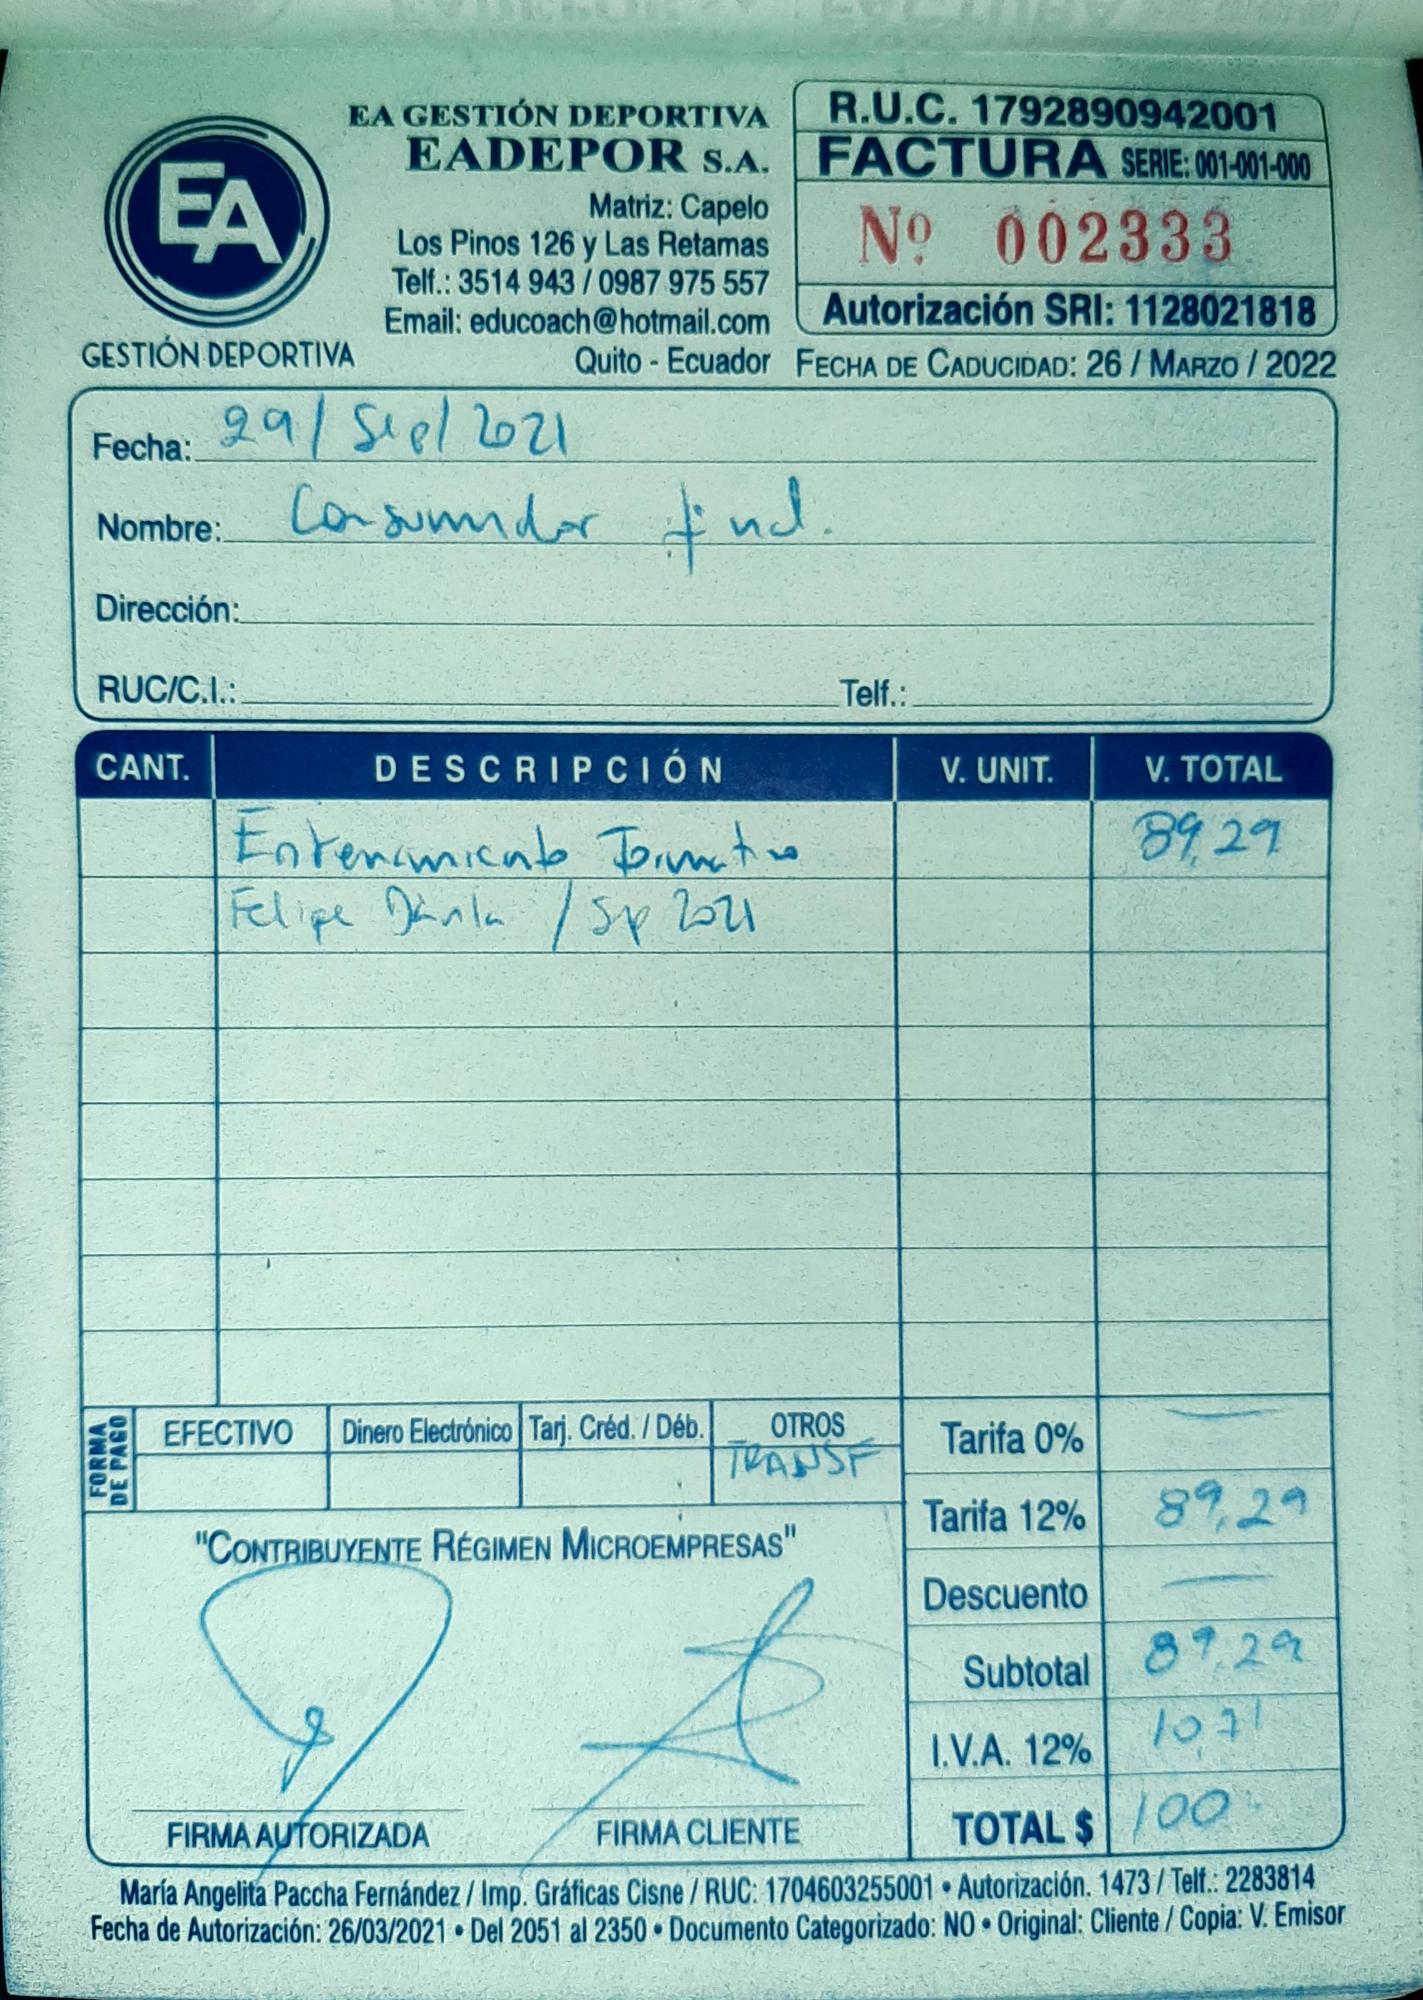 EA GESTIÓN DEPORTIVA
EADEPOR S.A.
Matriz: Capelo
Los Pinos 126 y Las Retamas
Telf.: 3514 943 / 0987 975 557
Email: educoach@hotmail.com
Quito - Ecuador
EA
GESTIÓN DEPORTIVA
R.U.C. 1792890942001
FACTURA SERIE: 001-001-000
Nº 002333
Autorización SRI: 1128021818
FECHA DE CADUCIDAD: 26 / MARZO / 2022
Fecha: 29/Sep/2021
Nombre: Consumidor final.
Dirección:
RUC/C.I.: Telf.:
CANT. DESCRIPCIÓN V. UNIT. V. TOTAL
Entrenamiento Formativo 89,29
Felipe Dávila / Sep 2021
FORMA DE PAGO
EFECTIVO Dinero Electrónico Tarj. Créd. / Déb. OTROS
TRANSF
Tarifa 0% —
Tarifa 12% 89,29
Descuento —
Subtotal 89,29
I.V.A. 12% 10,71
TOTAL $ 100
"CONTRIBUYENTE RÉGIMEN MICROEMPRESAS"
FIRMA AUTORIZADA FIRMA CLIENTE
María Angelita Paccha Fernández / Imp. Gráficas Cisne / RUC: 1704603255001 • Autorización. 1473 / Telf.: 2283814
Fecha de Autorización: 26/03/2021 • Del 2051 al 2350 • Documento Categorizado: NO • Original: Cliente / Copia: V. Emisor